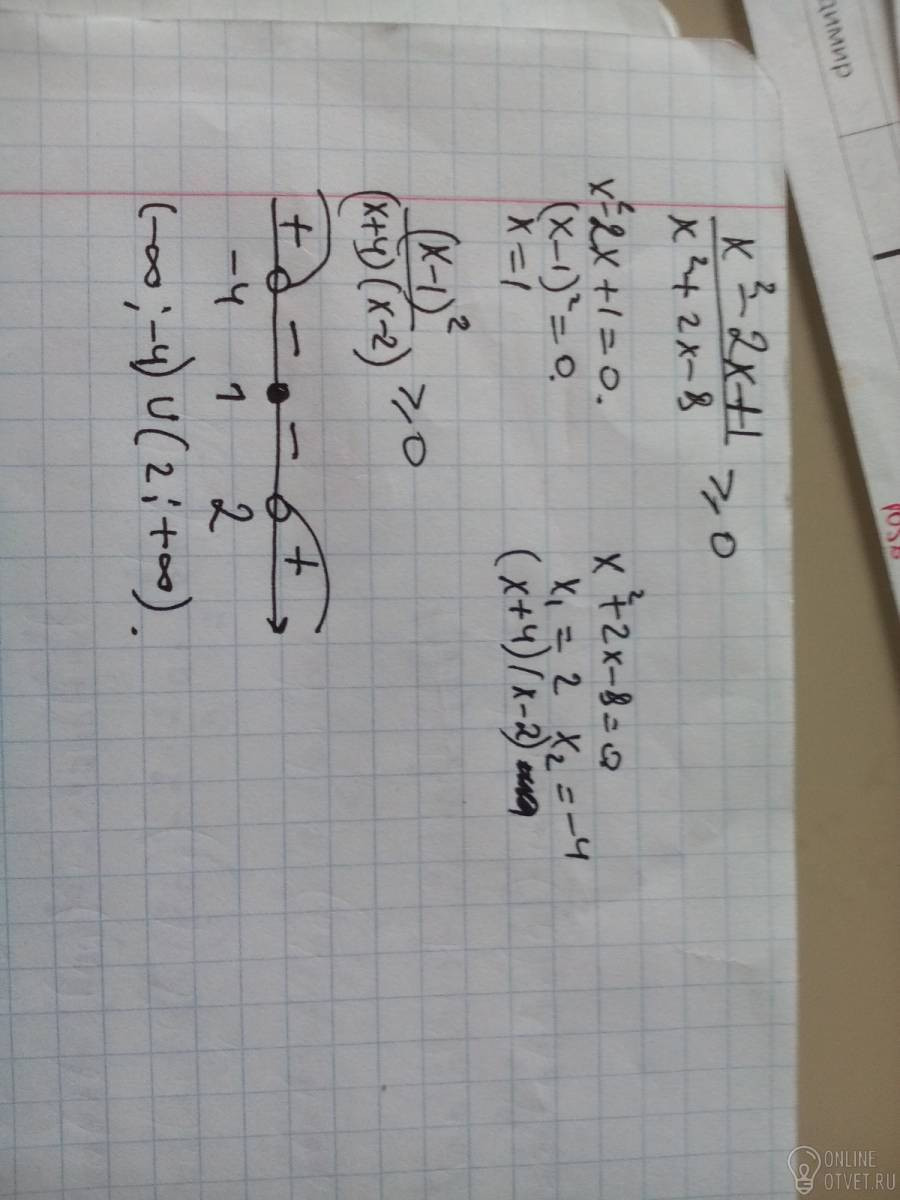 x² - 2x + 1
x² + 2x - 8
≥ 0
x² - 2x + 1 = 0.
(x - 1)² = 0.
x = 1
x² + 2x - 8 = 0
x₁ = 2 x₂ = -4
(x + 4)(x - 2)
(x - 1)²
(x + 4)(x - 2)
≥ 0
+ - - +
-4 1 2
(-∞; -4) ∪ (2; +∞).
димир
ONLINE
OTVET.RU